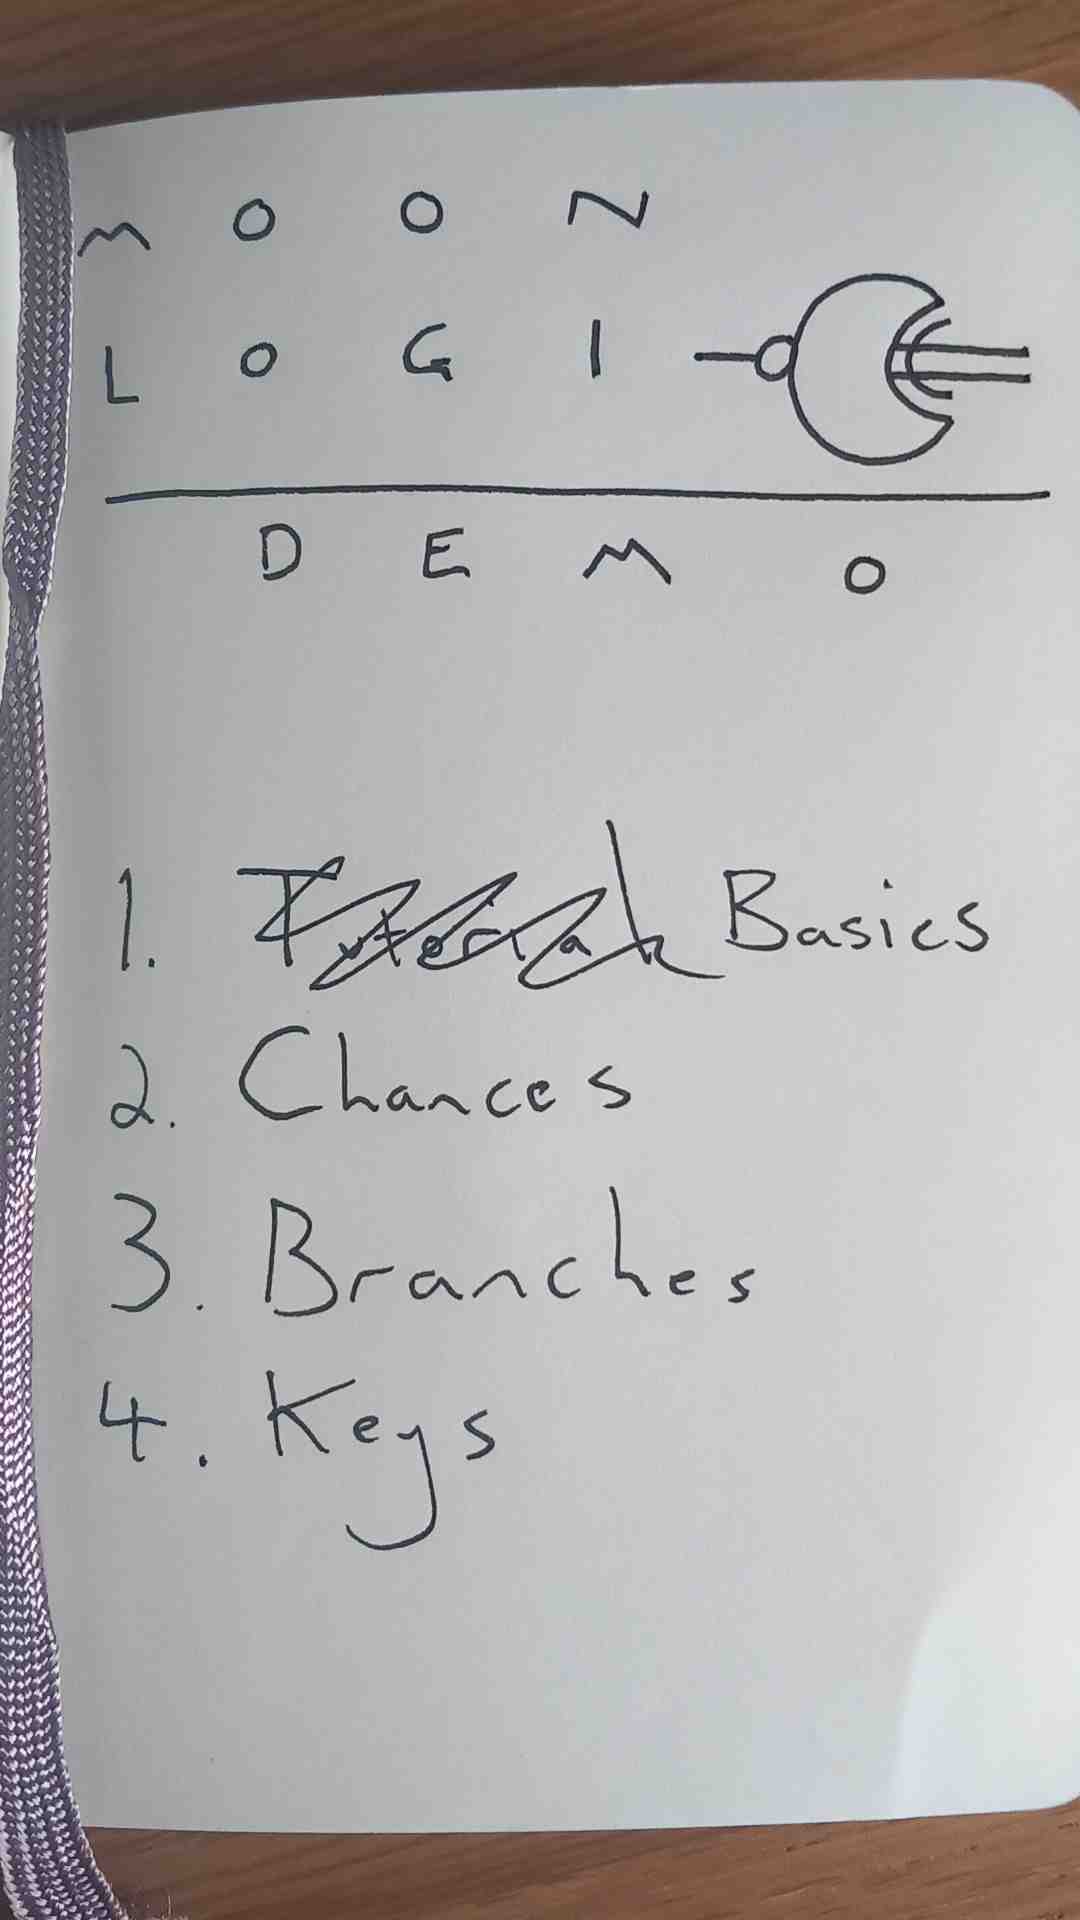 MOON
LOGIC
DEMO
1. Tutorial Basics
2. Chances
3. Branches
4. Keys